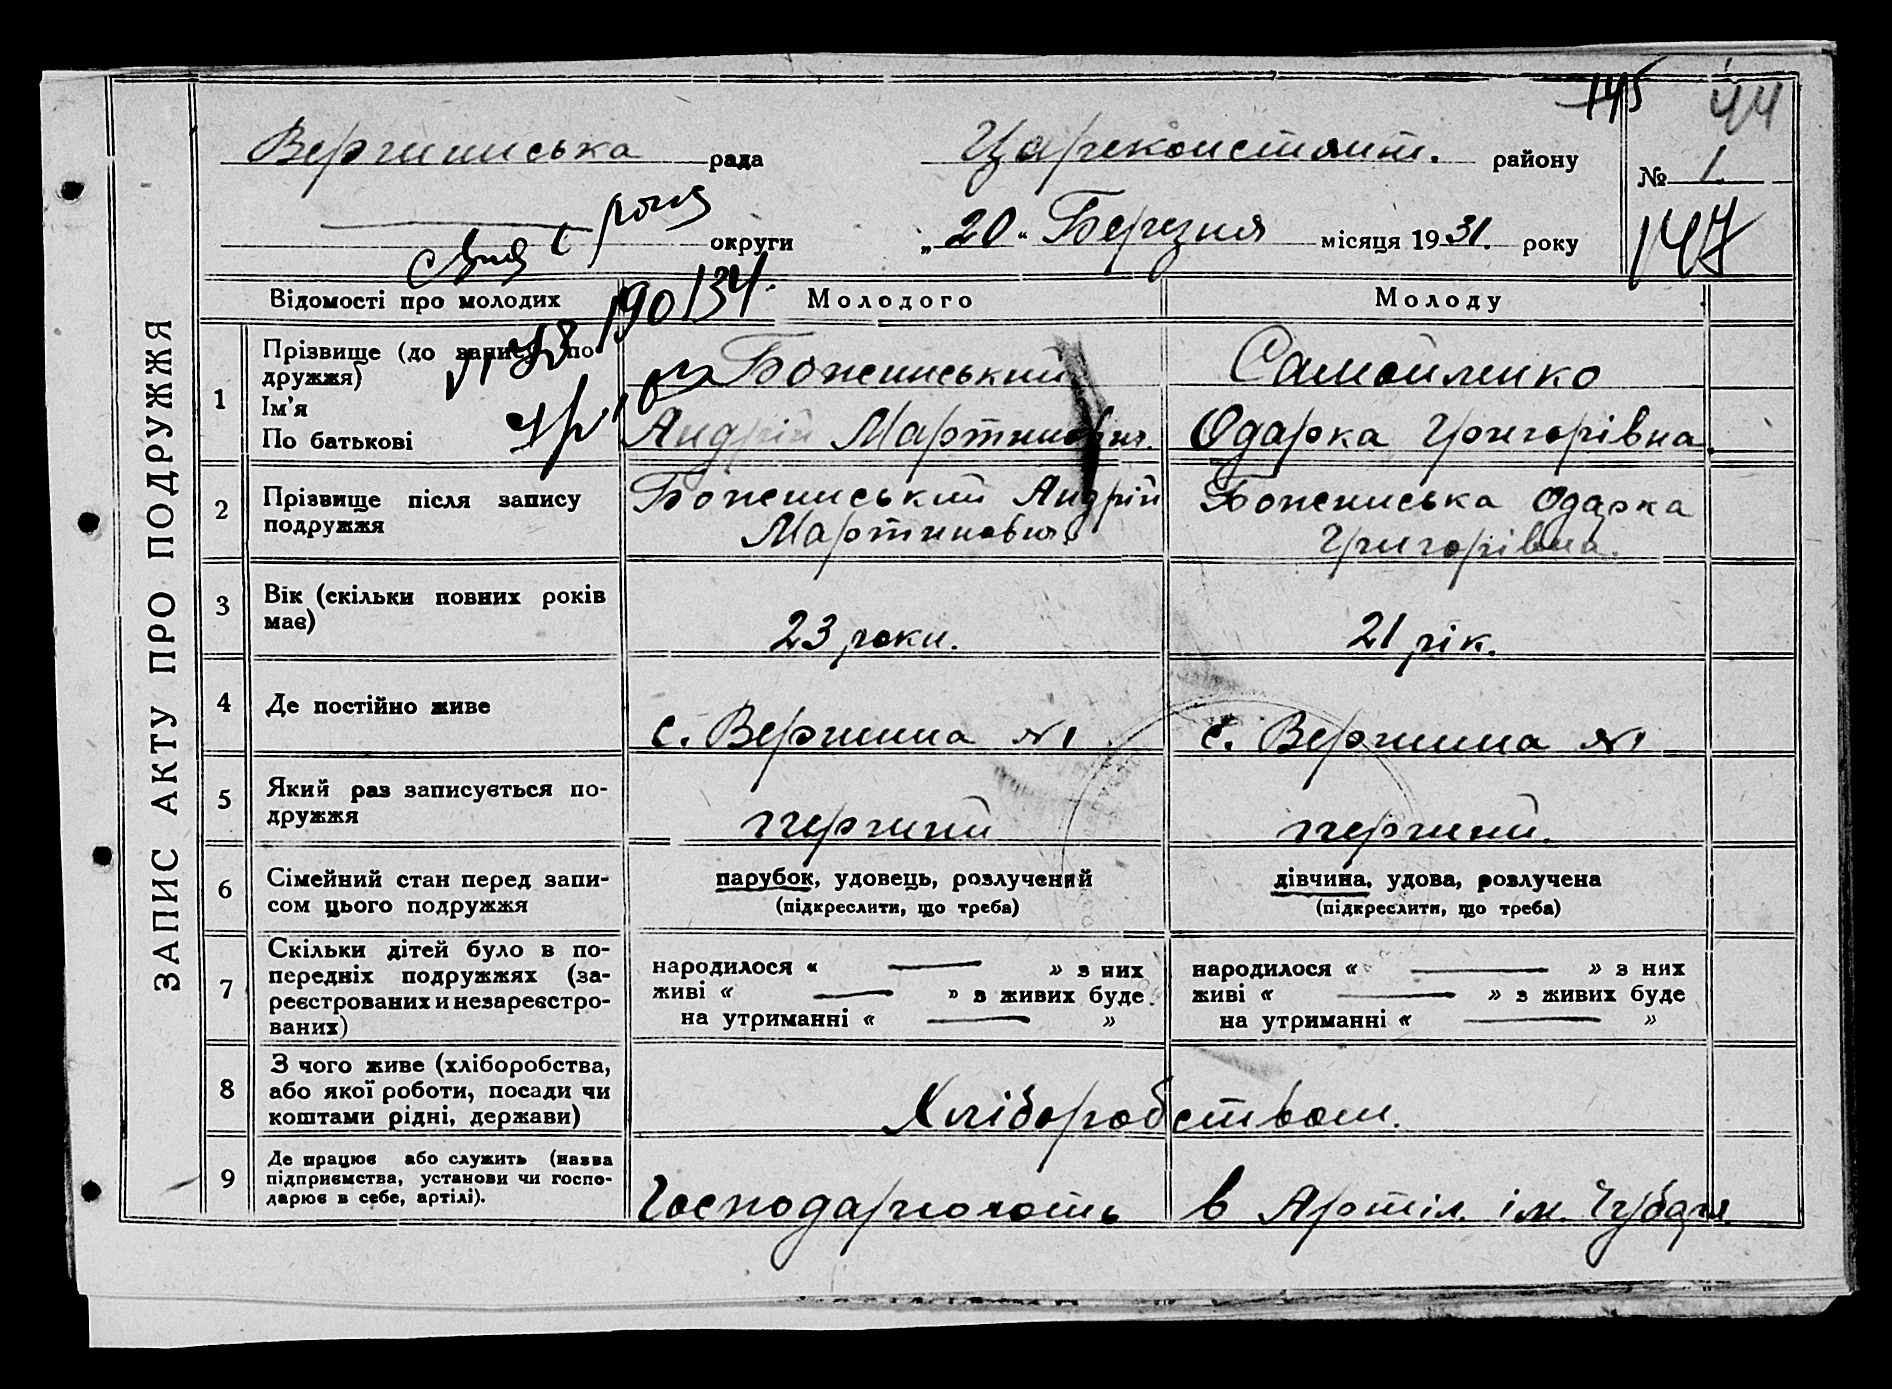 145
44
Вершинська рада
Цареконстянт. району
№ 1.
округи
„20“ Березня місяця 1931. року
147
190/34.
Відомості про молодих
Молодого
Молоду
ЗАПИС АКТУ ПРО ПОДРУЖЖЯ
1
Прізвище (до запису по-
дружжя)
Ім'я
По батькові
Божинський
Андрій Мартинович.
Самойленко
Одарка Григорівна.
2
Прізвище після запису
подружжя
Божинський Андрій
Мартинович.
Божинська Одарка
Григорівна.
3
Вік (скільки повних років
має)
23 роки.
21 рік.
4
Де постійно живе
с. Вершина №1
с. Вершина №1
5
Який раз записується по-
дружжя
перший
перший.
6
Сімейний стан перед запи-
сом цього подружжя
парубок, удовець, розлучений
(підкреслити, що треба)
дівчина, удова, розлучена
(підкреслити, що треба)
7
Скільки дітей було в по-
передніх подружжях (за-
реєстрованих и незареєстро-
ваних)
народилося « — » з них
живі « — » з живих буде
на утриманні « — »
народилося « — » з них
живі « — » з живих буде
на утриманні « — »
8
З чого живе (хліборобства,
або якої роботи, посади чи
коштами рідні, держави)
Хліборобством.
9
Де працює або служить (назва
підприємства, установи чи госпо-
дарює в себе, артілі).
Господарюють в Артіл. ім. Чубаря.